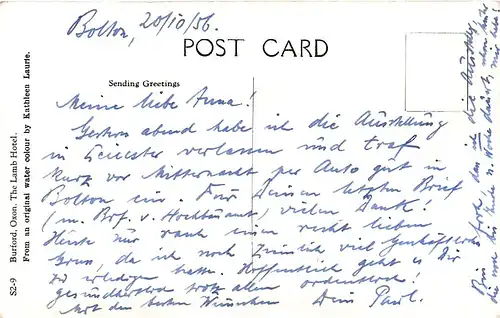 Bolton, 20/10/56.
POST CARD
Sending Greetings
Meine liebe Anna!
Gestern abend habe ich die Ausstellung
in Leicester verlassen und traf
kurz vor Mitternacht per Auto gut in
Bolton ein. Für Deinen letzten Brief
(m. Brf. v. ) vielen Dank!
Heute nur rasch einen recht lieben
Gruss, da ich noch ziemlich viel Geschäftliches
zu erledigen habe. Hoffentlich geht es Dir
gesundheitlich trotz allem ordentlich!
Mit den besten Wünschen Dein Paul.
Bin froh, dass ich die Ausstellg.
Burford, Oxon: The Lamb Hotel.
From an original water colour by Kathleen Laurie.
S2-9